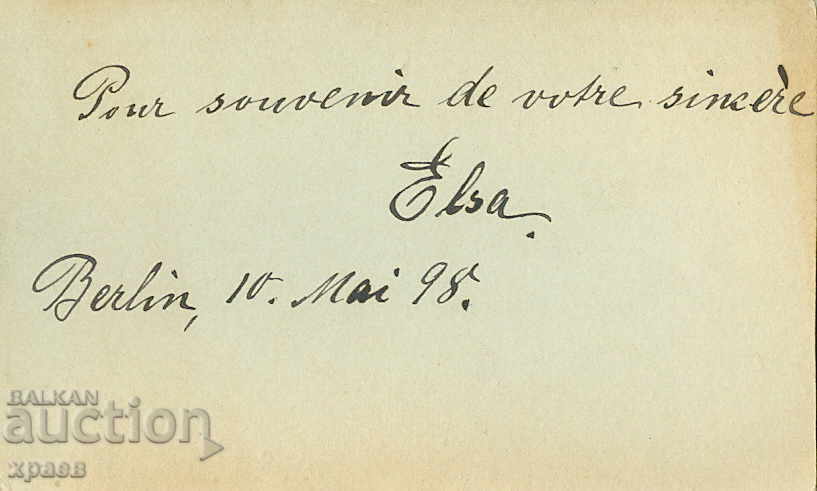 Pour souvenir de votre sincère
Elsa.
Berlin, 10. Mai 98.
BALKAN
auction
храев